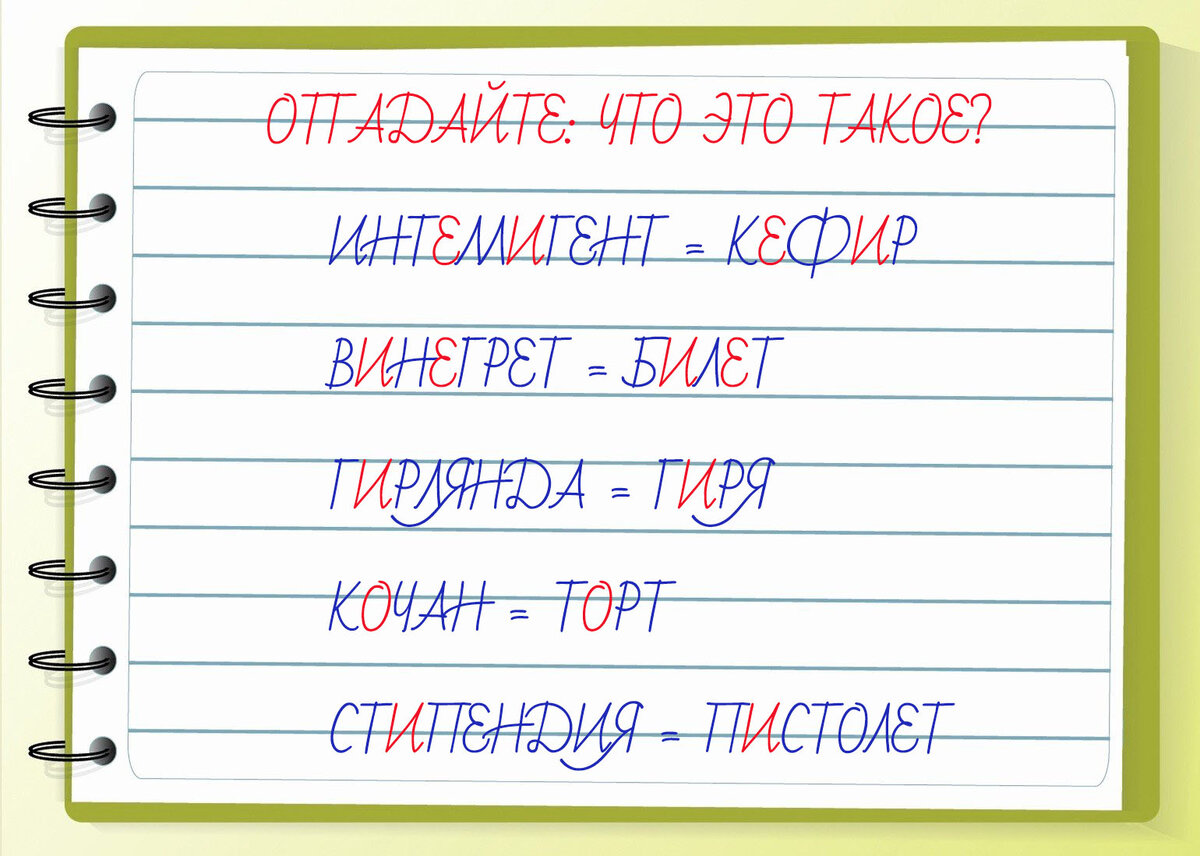 ОТГАДАЙТЕ: ЧТО ЭТО ТАКОЕ?
ИНТЕЛЛИГЕНТ = КЕФИР
ВИНЕГРЕТ = БИЛЕТ
ГИРЛЯНДА = ГИРЯ
КОЧАН = ТОРТ
СТИПЕНДИЯ = ПИСТОЛЕТ